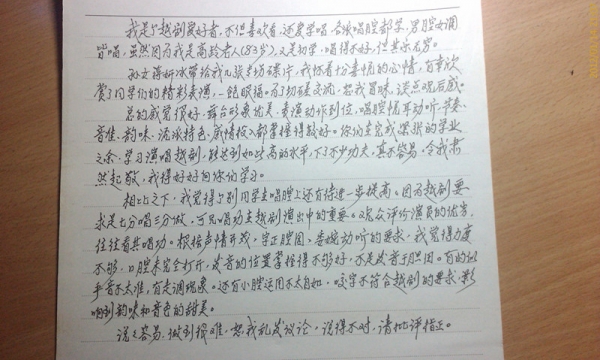 我是个越剧爱好者，不但喜欢看，还爱学唱，各派唱腔都学，男腔女调
皆唱，虽然因为我是高龄老人(83岁)，又是初学，唱得不好，但其乐无穷。
孙女得妍冰带给我几张专场碟片，我怀着十分喜悦的心情，有幸欣
赏了同学们的精彩表演，一饱眼福。为了切磋交流，恕我冒昧，谈点观后感。
总的感觉很好，舞台形象优美，表演动作到位，唱腔悦耳动听，节奏、
音准、韵味、流派特色、感情投入都掌握得较好。你们在完成繁报的学业
之余，学习演唱越剧，能达到如此高的水平，下了不少功夫，真不容易，令我肃
然起敬，我得好好向你们学习。
相比之下，我觉得个别同学在唱腔上还有待进一步提高。因为越剧要
求是七分唱三分做，可见唱功在越剧演出中的重要。观众评价演员的优劣，
往往看其唱功。根据声情并茂、字正腔圆、委婉动听的要求，我觉得力度
不够，口腔未完全打开，发音的位置掌握得不够好，不是发音于胆田。有的
乎音不太准，有走调现象。还有小腔运用不太自如，咬字不符合越剧的要求，影
响到韵味和音色的甜美。
说之容易，做到很难，恕我乱发议论，说得不对，请批评指正。